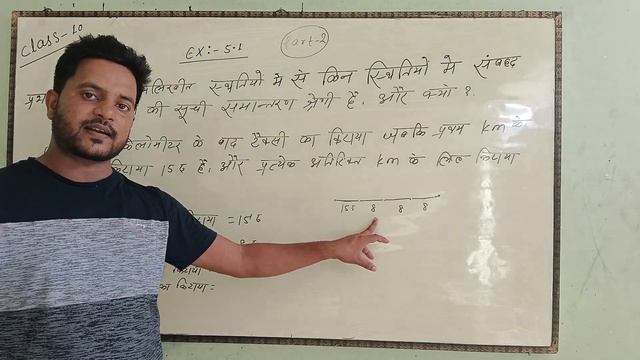 Class-10
EX:- 5.1
Part-2
स्थितियों में से किन स्थितियों में संबद्ध
की सूची समान्तर श्रेणी हैं, और क्यों ?
के बाद टैक्सी का किराया जबकि प्रथम km के
किराया 15 ₹ है, और प्रत्येक अतिरिक्त km के लिए किराया
15 ₹ 8 8 8
किराया = 15 ₹
किराया
का किराया =